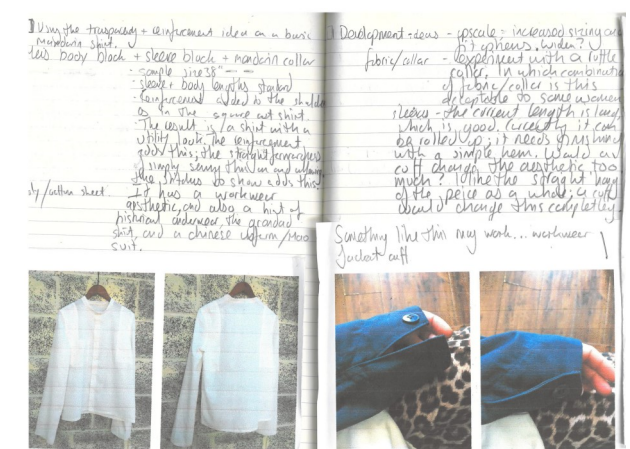 Using the trasparency + reinforcement idea on a basic
Mandarin shirt.
body block + sleeve block + mandarin collar
- sample size 38"
- sleeve + body lengths standard
- Reinforcement added to the shoulder
as in the square cut shirt.
- The result is a shirt with a
utility look. The reinforcement
adds this; the straightforwardness
of simply sewing this on and allowing
the stitches to show adds this
/cotton sheet. It has a workwear
aesthetic, and also a hint of
historical underwear, the grandad
shirt, and a chinese uniform/Mao
suit.
Development - ideas - upscale = increased sizing and
fit opheus. widen?
fabric/collar - experiment with a ruffle
collar. In which combination
of fabric/collar is this
acceptable to some women
sleeves - the current length is long,
which is good. Currently it can
be rolled up; it needs finishing
with a simple hem. Would a
cuff change the aesthetic too
much? I like the straight hang
of the peice as a whole; a cuff
would change this completely
Something like this may work... workwear
jacket cuff